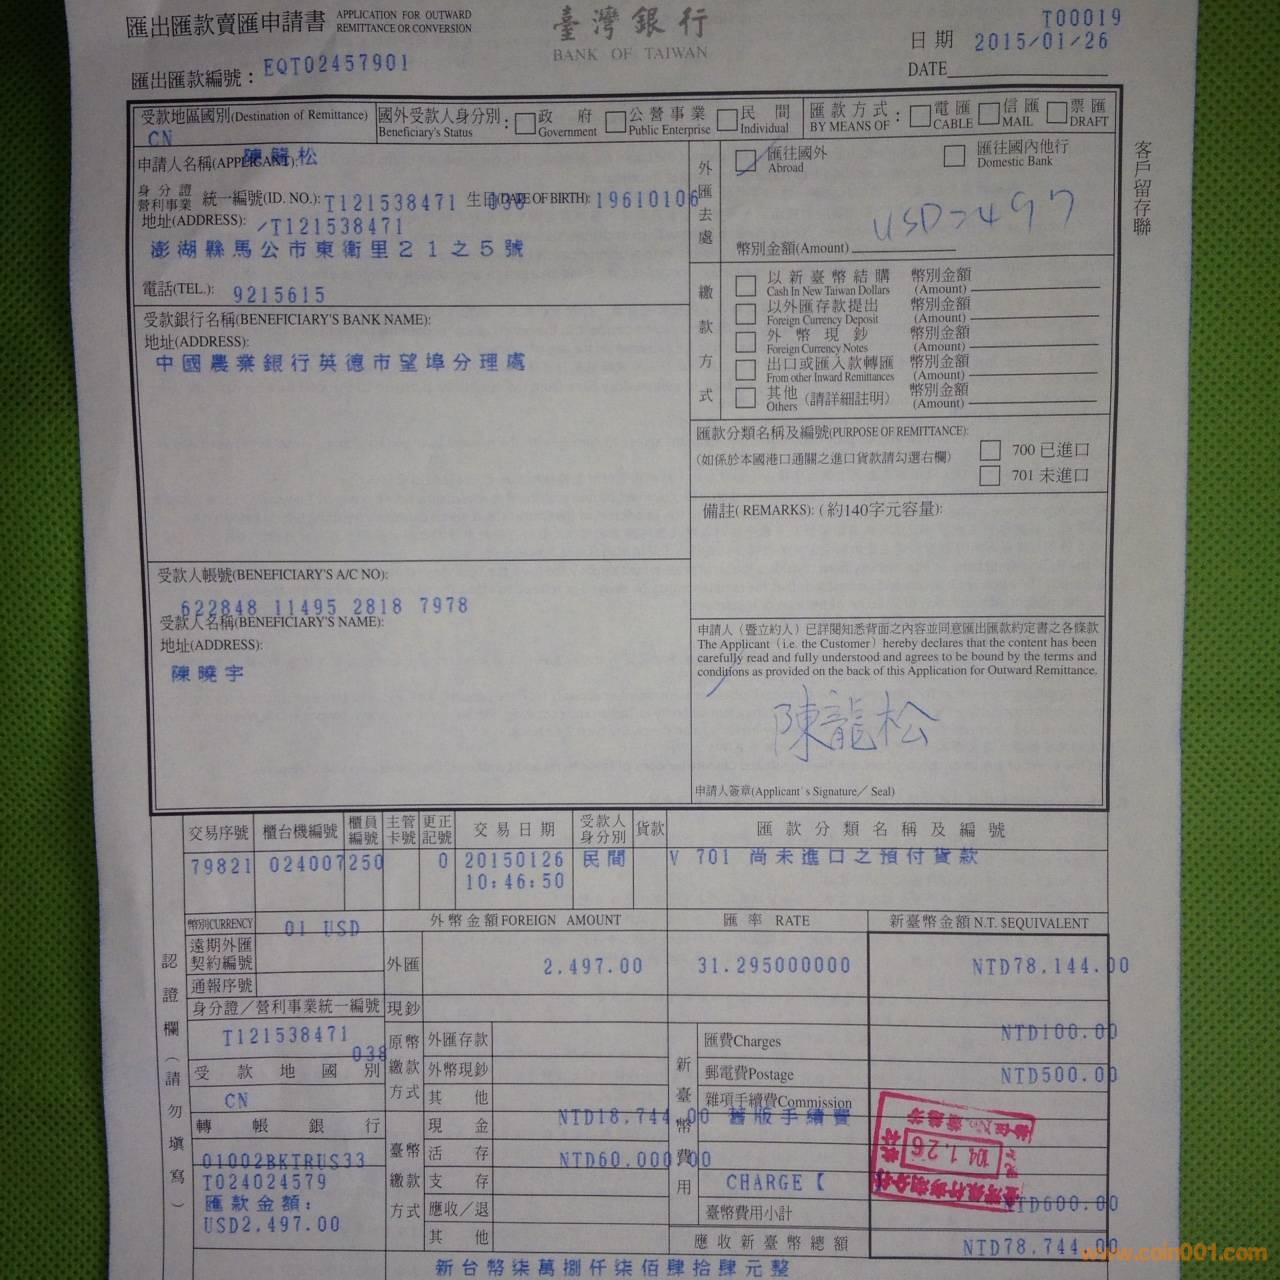 匯出匯款賣匯申請書 APPLICATION FOR OUTWARD REMITTANCE OR CONVERSION
臺灣銀行
BANK OF TAIWAN
T00019
日期 2015/01/26
DATE
匯出匯款編號： EQT02457901
客戶留存聯
受款地區國別(Destination of Remittance)
CN
國外受款人身分別：
Beneficiary's Status
政府 Government
公營事業 Public Enterprise
民間 Individual
匯款方式：
BY MEANS OF
電匯 CABLE
信匯 MAIL
票匯 DRAFT
申請人名稱(APPLICANT):
身分證
營利事業 統一編號(ID. NO.): T121538471 生日(DATE OF BIRTH): 19610106
地址(ADDRESS): /T121538471
澎湖縣馬公市東衛里21之5號
電話(TEL.): 9215615
外匯去處
匯往國外 Abroad
匯往國內他行 Domestic Bank
幣別金額(Amount) USD2497
受款銀行名稱(BENEFICIARY'S BANK NAME):
地址(ADDRESS):
中國農業銀行英德市望埠分理處
繳款方式
以新臺幣結購 幣別金額
Cash In New Taiwan Dollars (Amount)
以外匯存款提出 幣別金額
Foreign Currency Deposit (Amount)
外幣現鈔 幣別金額
Foreign Currency Notes (Amount)
出口或匯入款轉匯 幣別金額
From other Inward Remittances (Amount)
其他 (請詳細註明) 幣別金額
Others (Amount)
匯款分類名稱及編號(PURPOSE OF REMITTANCE):
(如係於本國港口通關之進口貨款請勾選右欄)
700 已進口
701 未進口
備註( REMARKS): ( 約140字元容量):
受款人帳號(BENEFICIARY'S A/C NO):
622848 11495 2818 7978
受款人名稱(BENEFICIARY'S NAME):
地址(ADDRESS):
陳曉宇
申請人（暨立約人）已詳閱知悉背面之內容並同意匯出匯款約定書之各條款
The Applicant（i.e. the Customer）hereby declares that the content has been
carefully read and fully understood and agrees to be bound by the terms and
conditions as provided on the back of this Application for Outward Remittance.
陳龍松
申請人簽章(Applicant´s Signature／ Seal)
認證欄（請勿填寫）
交易序號 櫃台機編號 櫃員編號 主管卡號 更正記號 交易日期 受款人身分別 貨款 匯款分類名稱及編號
79821 024007 250 0 20150126 民間 V 701 尚未進口之預付貨款
10:46:50
幣別CURRENCY 01 USD 外幣金額FOREIGN AMOUNT 匯率 RATE 新臺幣金額N.T. $EQUIVALENT
遠期外匯
契約編號 外匯 2,497.00 31.295000000 NTD78,144.00
通報序號
身分證／營利事業統一編號 現鈔
T121538471
038
原幣繳款方式 外匯存款 匯費Charges NTD100.00
受款地國別 外幣現鈔 郵電費Postage NTD500.00
CN 其他 雜項手續費Commission
轉帳銀行 現金 NTD18,744.00 舊版手續費
01002BKTRUS33 臺幣繳款方式 活存 NTD60,000.00
T024024579 支存 CHARGE【 NTD600.00
新臺幣費用
匯款金額: 應收／退 臺幣費用小計
USD2,497.00 其他 應收新臺幣總額 NTD78,744.00
新台幣柒萬捌仟柒佰肆拾肆元整
104.1.26
www.coin001.com